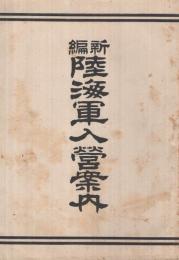 新編
陸海軍入營案内